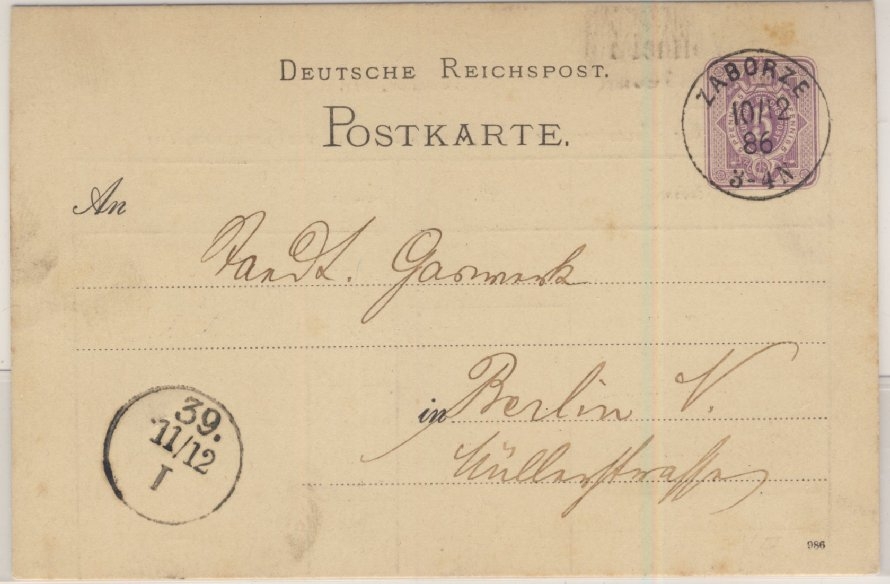 DEUTSCHE REICHSPOST.
POSTKARTE.
ZABORZE
10/12
86
3-4N
5
An
Staedt. Gaswerk
in Berlin N.
Müllerstrasse
39.
11/12
I
986